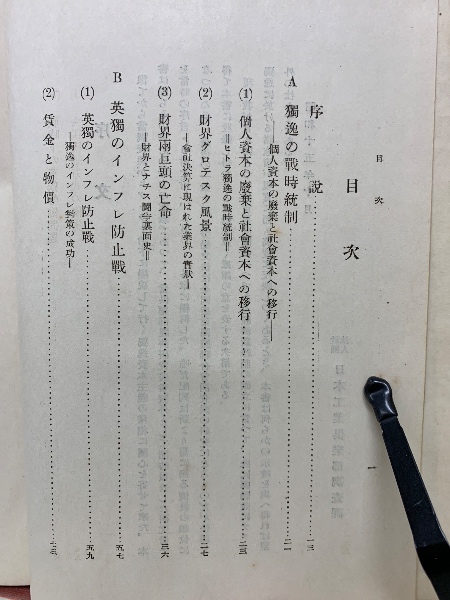 目次
目次
一
序説……一三
A 獨逸の戰時統制……二一
個人資本の廢棄と社會資本への移行
(1) 個人資本の廢棄と社會資本への移行……二三
‖ヒトラ獨逸の戰時統制‖
(2) 財界グロテスク風景……二七
‖會計決算に現はれた業界の實狀‖
(3) 財界兩巨頭の亡命……三六
‖財界とナチス鬪爭裏面史‖
B 英獨のインフレ防止戰……五七
(1) 英獨のインフレ防止戰……五九
‖獨逸のインフレ對策の成功‖
(2) 賃金と物價……